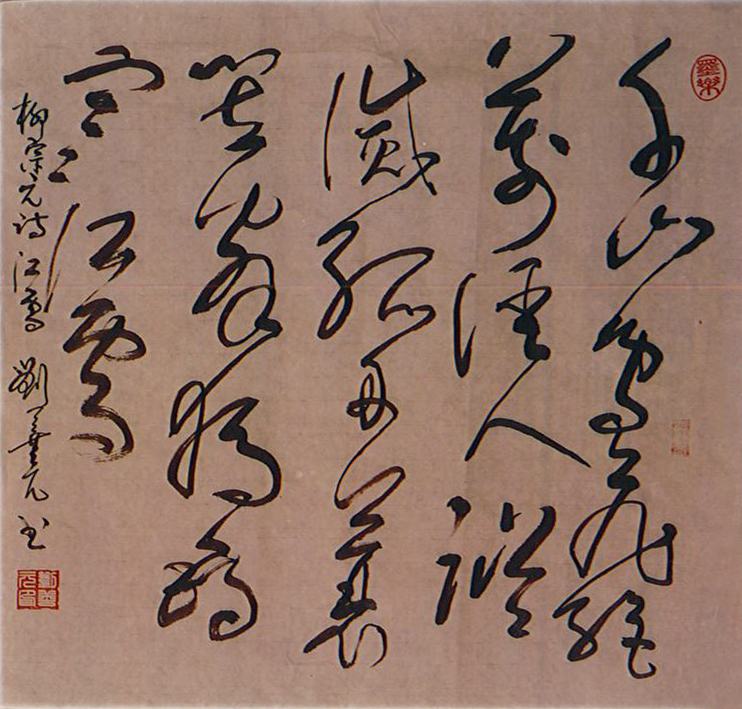 墨樂
千山鳥飛絕
萬徑人蹤
滅孤舟蓑
笠翁獨釣
寒江雪
柳宗元詩江雪 劉元书